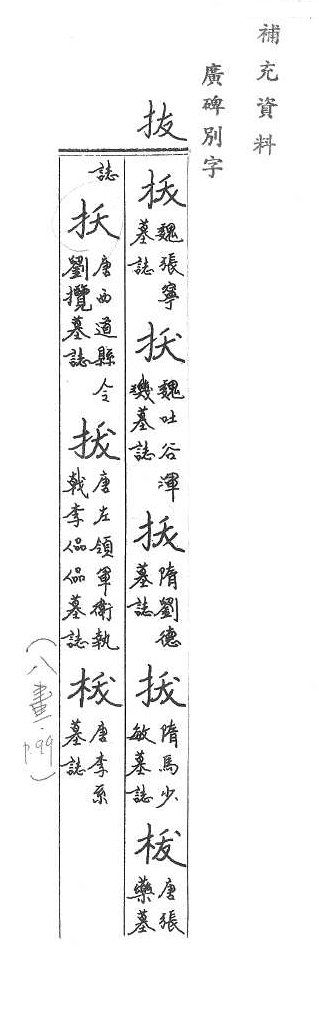 補充資料
廣碑別字
拔
魏張寧
墓誌
魏吐谷渾
璣墓誌
隋劉德
墓誌
隋馬少
敏墓誌
唐張
藥墓
誌
唐西道縣令
劉攬墓誌
唐左領軍衛執
戟李品品墓誌
唐李系
墓誌
(八畫.
p.99)